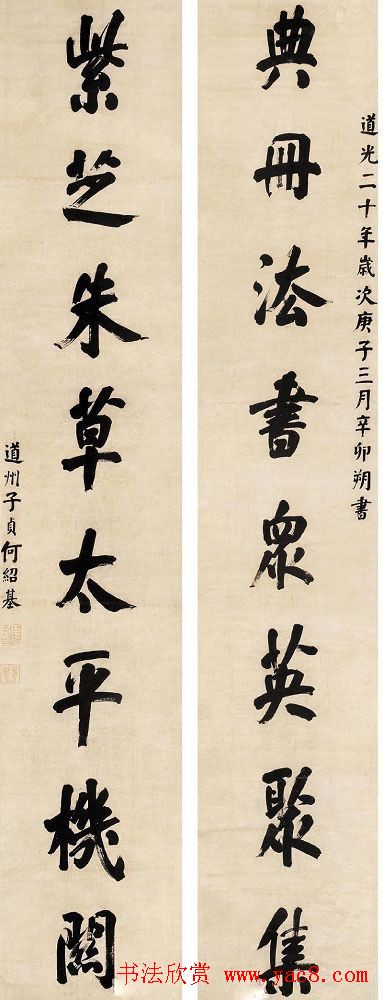 道光二十年歲次庚子三月辛卯朔書
典冊法書眾英聚集
紫芝朱草太平機關
道州子貞何紹基
书法欣赏 www.yac8.com